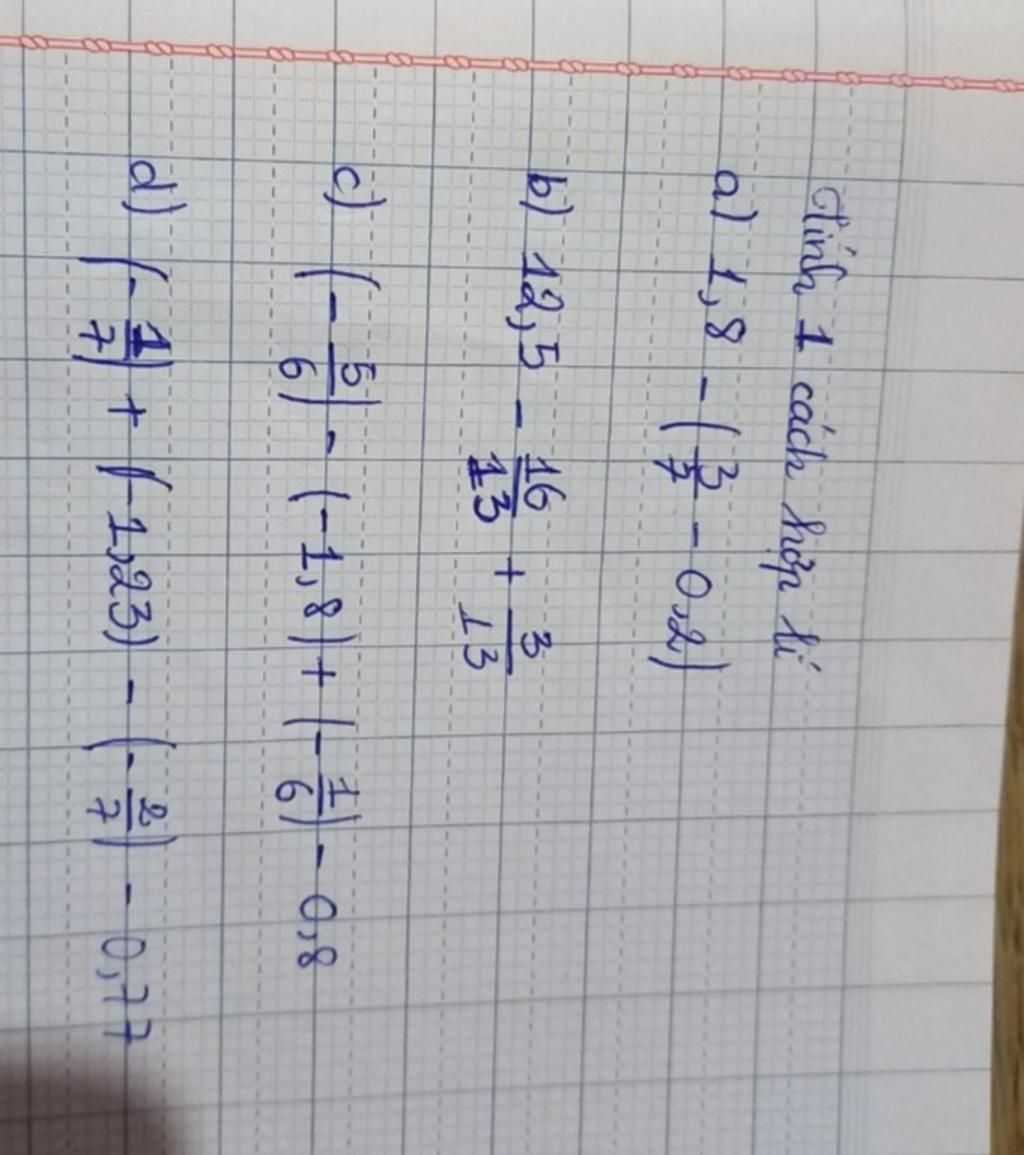 Tính 1 cách hợp lí
a) 1,8 - (3/7 - 0,2)
b) 12,5 - 16/13 + 3/13
c) (-5/6) - (-1,8) + (-1/6) - 0,8
d) (-1/7) + (-1,23) - (-2/7) - 0,77